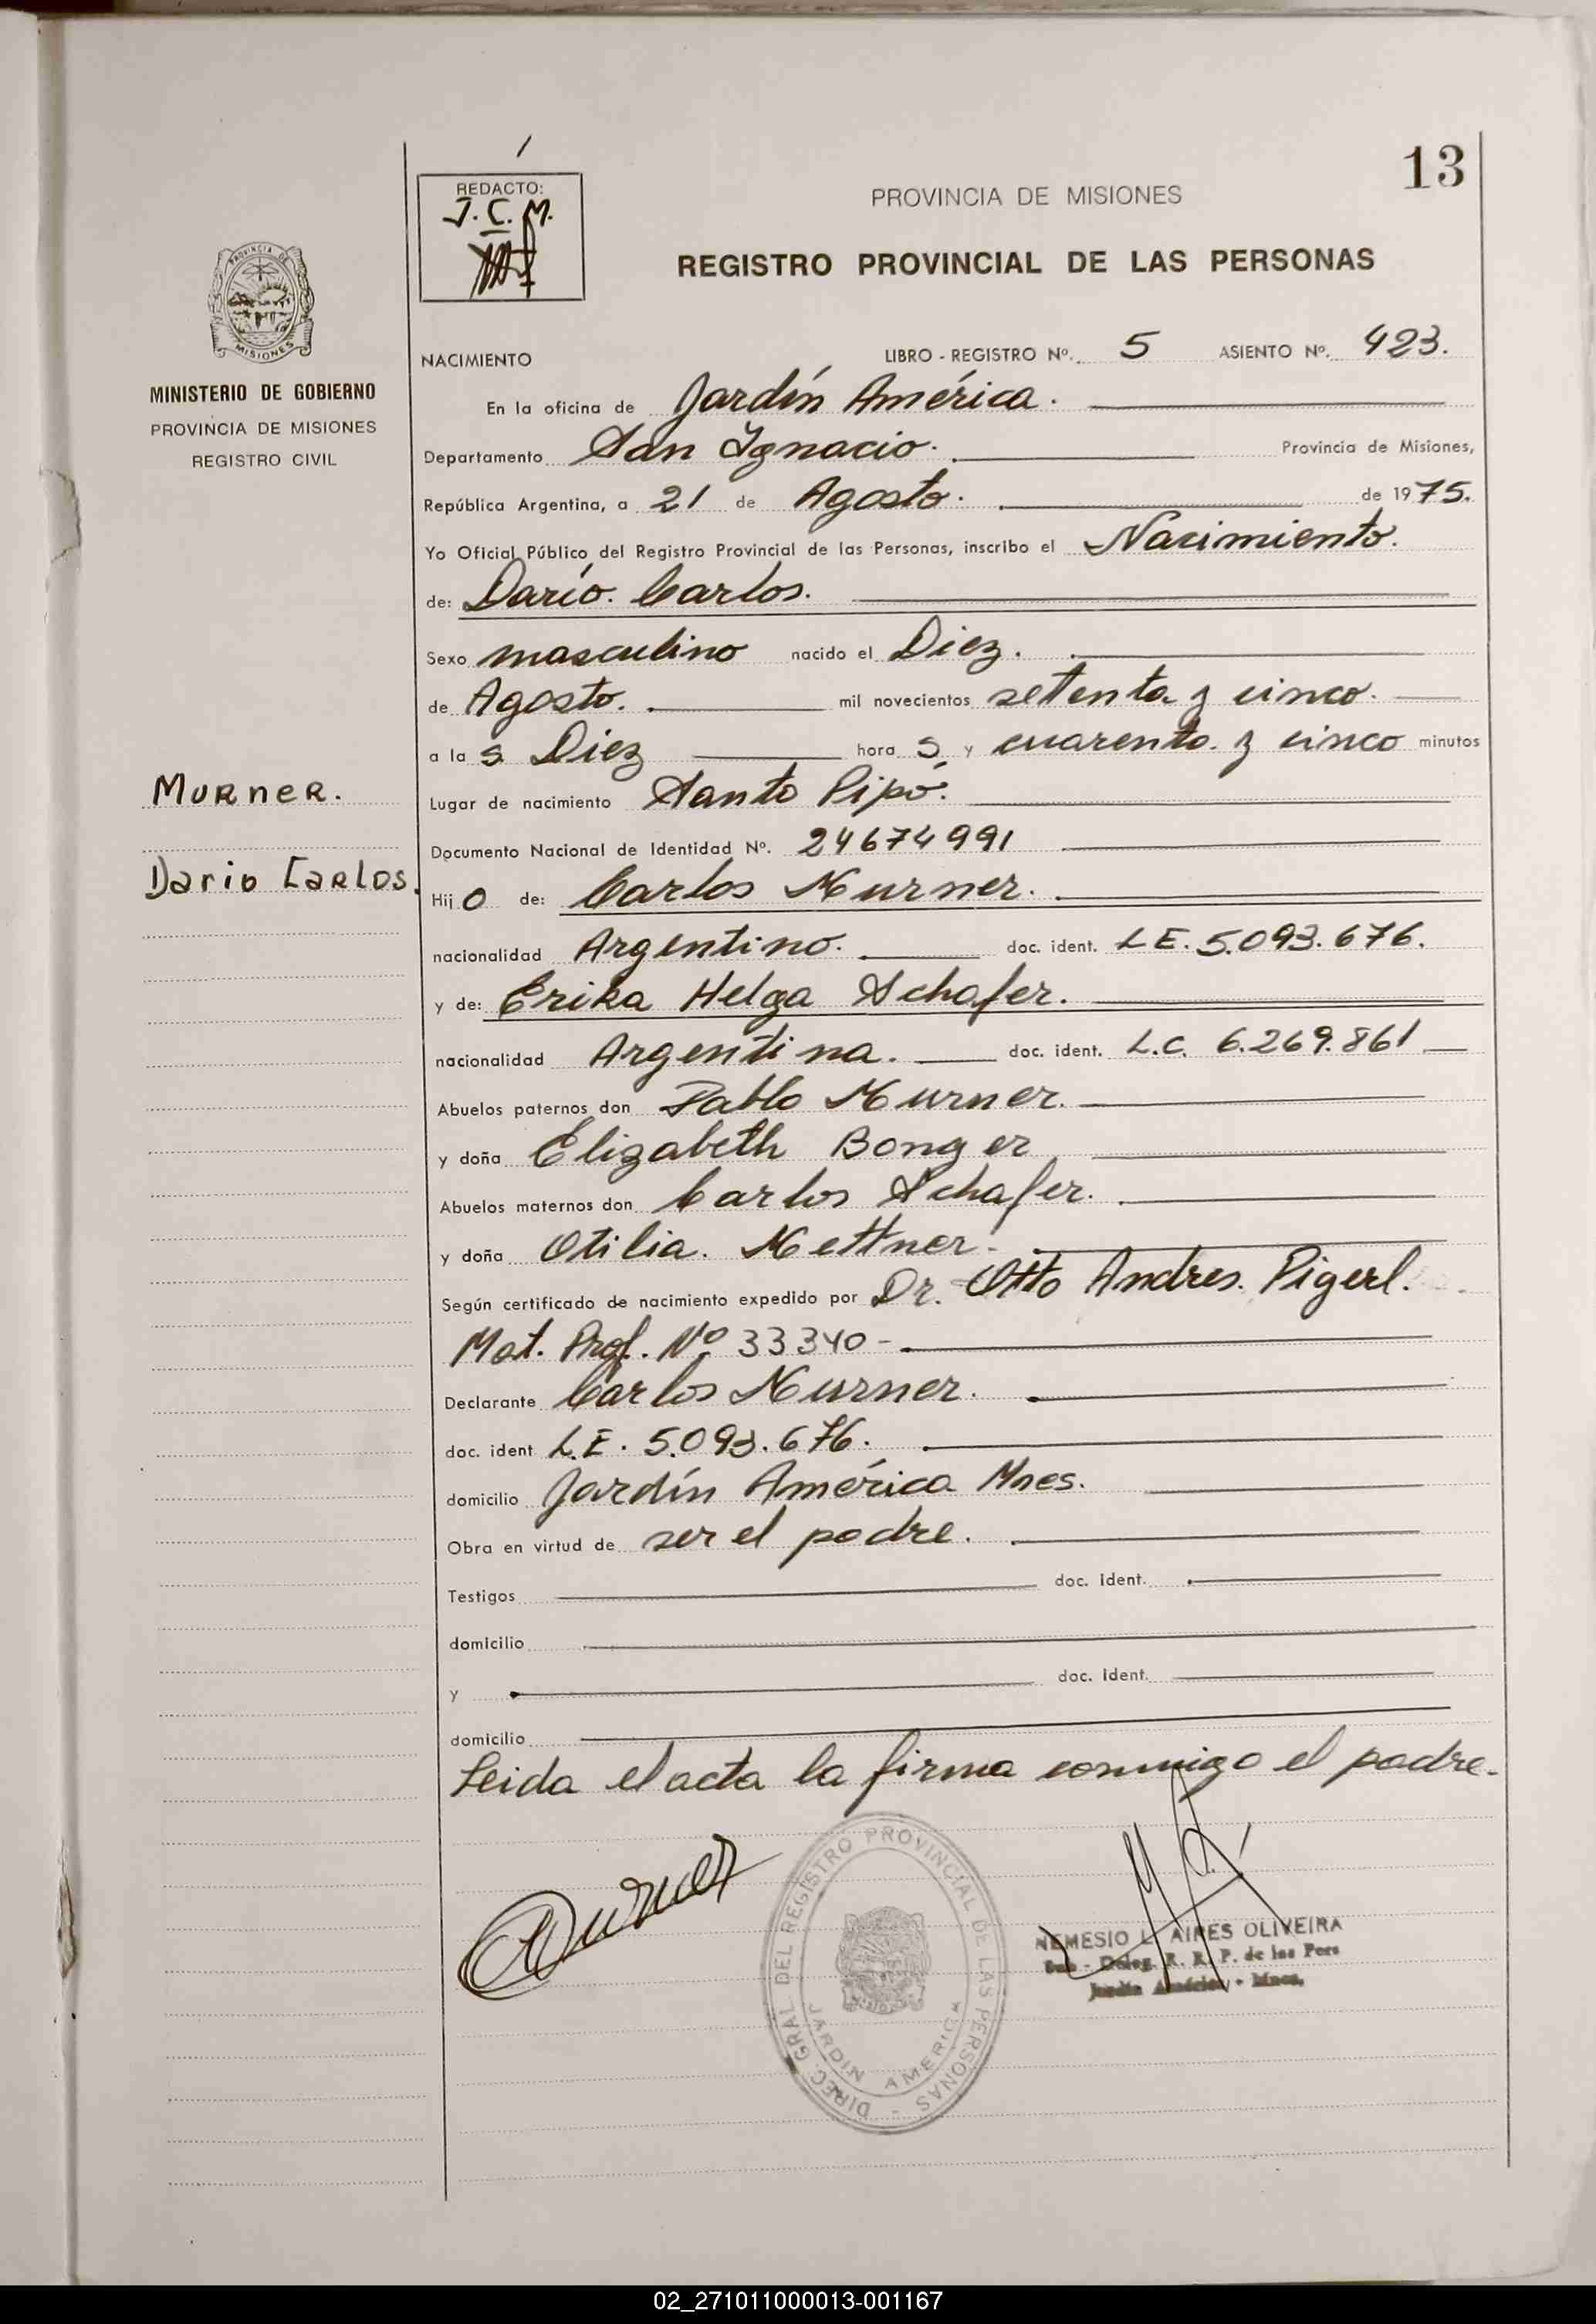 13
REDACTO:
J. C. M.
PROVINCIA DE MISIONES
REGISTRO PROVINCIAL DE LAS PERSONAS
PROVINCIA DE
MISIONES
MINISTERIO DE GOBIERNO
PROVINCIA DE MISIONES
REGISTRO CIVIL
NACIMIENTO LIBRO - REGISTRO Nº. 5 ASIENTO Nº. 423.
En la oficina de Jardín América.
Departamento San Ignacio. Provincia de Misiones,
República Argentina, a 21 de Agosto. de 1975.
Yo Oficial Público del Registro Provincial de las Personas, inscribo el Nacimiento.
de: Darío. Carlos.
Sexo masculino nacido el Diez.
de Agosto. mil novecientos setenta y cinco.
a la s Diez hora s y cuarenta y cinco minutos
Murner.
Lugar de nacimiento Santo Pipó.
Documento Nacional de Identidad Nº. 24674991
Dario Carlos.
Hij o de: Carlos Murner.
nacionalidad Argentino. doc. ident. L.E. 5.093.676.
y de: Erika Helga Schafer.
nacionalidad Argentina. doc. ident. L.C. 6.269.861
Abuelos paternos don Pablo Murner.
y doña Elizabeth Bonger
Abuelos maternos don Carlos Schafer.
y doña Otilia. Mettner.
Según certificado de nacimiento expedido por Dr. Otto Andres. Pigerl.
Mat. Prof. Nº 33340-
Declarante Carlos Murner.
doc. ident L.E. 5.093.676.
domicilio Jardín América Mnes.
Obra en virtud de ser el padre.
Testigos doc. ident.
domicilio
y doc. ident.
domicilio
Leida el acta la firma conmigo el padre.
Murner
DIREC. GRAL. DEL REGISTRO PROVINCIAL DE LAS PERSONAS -
JARDIN AMERICA
NEMESIO L. AIRES OLIVEIRA
Sub - Deleg. R. R. P. de las Pers
Jardín América - Mnes.
02_271011000013-001167